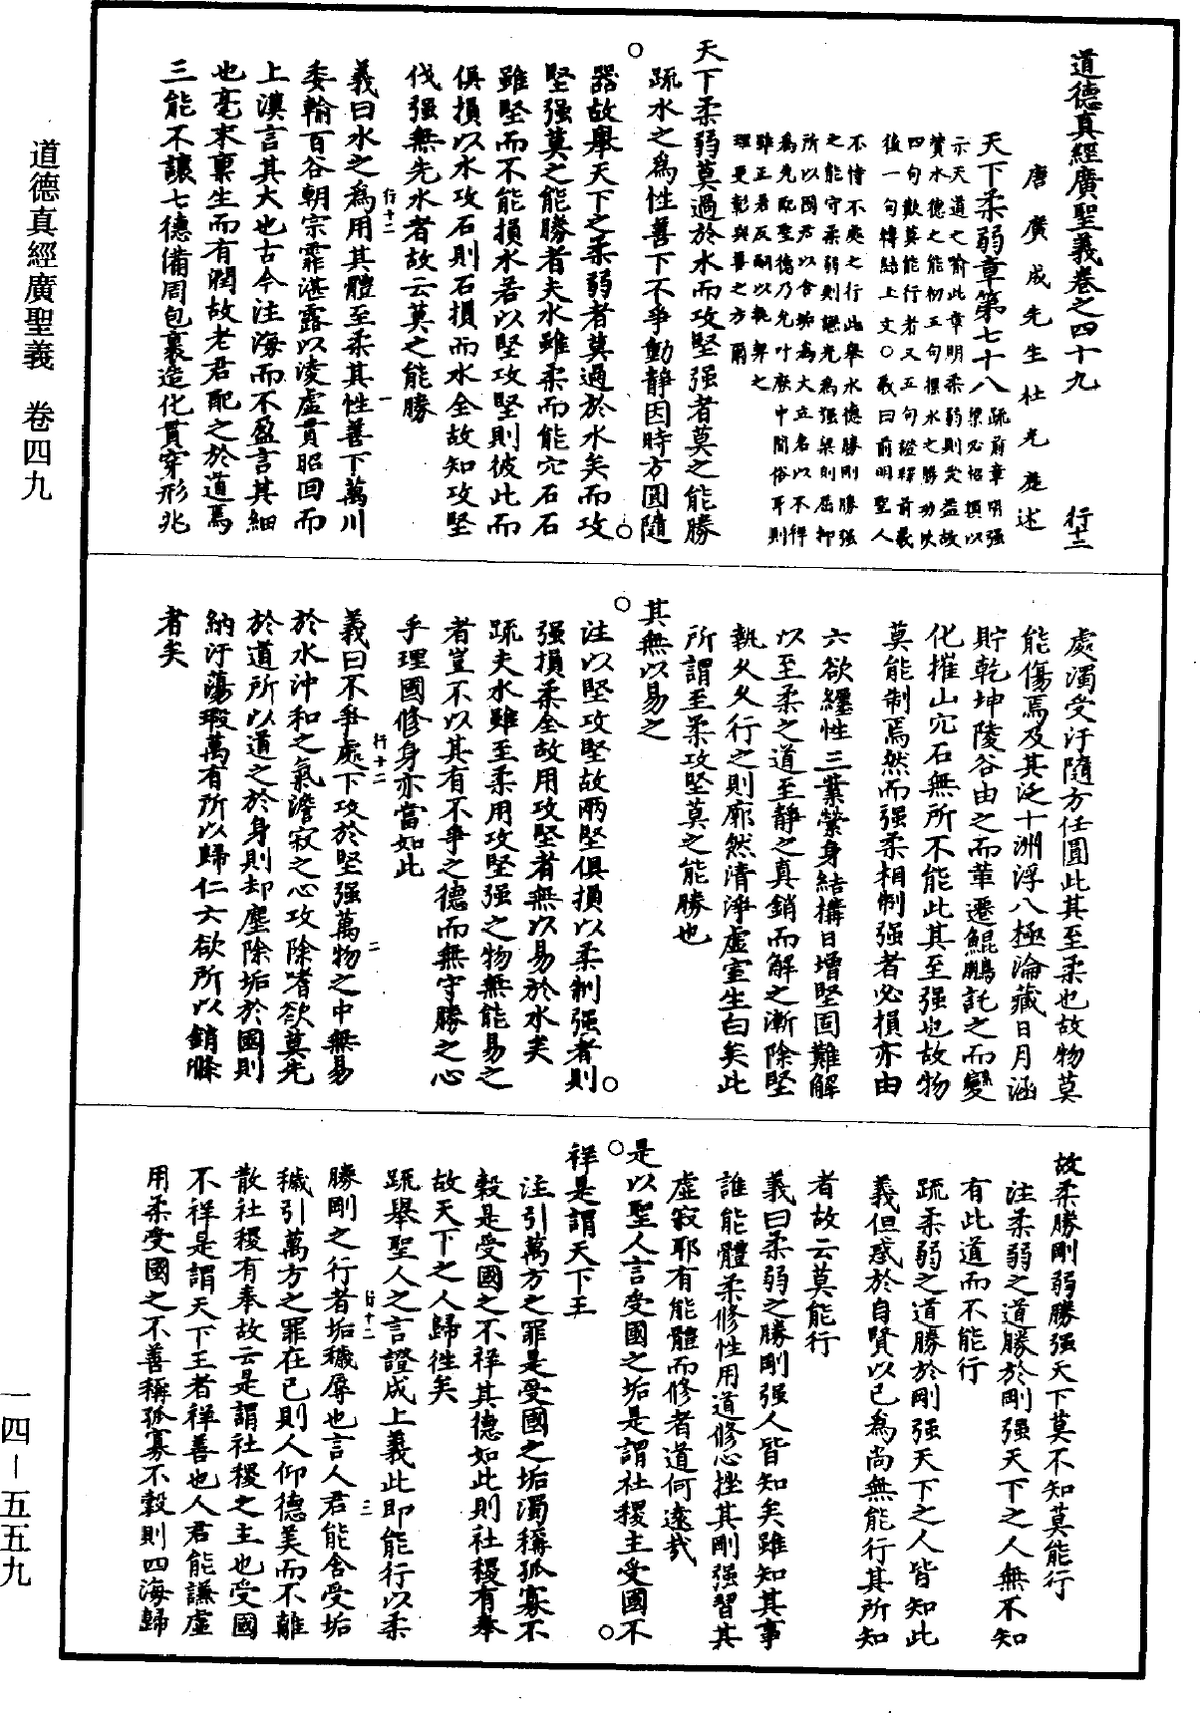 道德真經廣聖義卷之四十九　行十二
唐廣成先生杜光庭述
天下柔弱章第七十八
疏前章明强
梁必招損以
示天道之喻此章明柔弱則受益故
贊水德之能初五句標水之勝功次
四句歎莫能行者又五句證釋前義
後一句轉結上文○義曰前明聖人
不恃不處之行此舉水德勝剛勝强
之能守柔弱則謙光為强梁則屈抑
所以國君以含垢為大立名以不得
為先配聖德乃允叶厥中間俗耳則
辭正若反嗣以執契之
理更彰與善之方爾
天下柔弱莫過於水而攻堅强者莫之能勝
疏水之為性善下不爭動靜因時方圓隨
器故舉天下之柔弱者莫過於水矣而攻
堅强莫之能勝者夫水雖柔而能穴石石
雖堅而不能損水若以堅攻堅則彼此而
俱損以水攻石則石損而水全故知攻堅
伐强無先水者故云莫之能勝
行十二　一
義曰水之為用其體至柔其性善下萬川
委輸百谷朝宗霏湛露以凌虛貫昭回而
上漢言其大也古今注海而不盈言其細
也毫末稟生而有潤故老君配之於道焉
三能不讓七德備周包裹造化貫穿形兆
處濁受汙隨方任圓此其至柔也故物莫
能傷焉及其泛十洲浮八極淪藏日月涵
貯乾坤陵谷由之而革遷鯤鵬託之而變
化摧山穴石無所不能此其至强也故物
莫能制焉然而强柔相制强者必損亦由
六欲纏性三業縈身結構日增堅固難解
以至柔之道至靜之真銷而解之漸除堅
執久久行之則廓然清淨虛室生白矣此
所謂至柔攻堅莫之能勝也
其無以易之
注以堅攻堅故兩堅俱損以柔制强者則
强損柔全故用攻堅者無以易於水矣
疏夫水雖至柔用攻堅强之物無能易之
者豈不以其有不爭之德而無守勝之心
乎理國修身亦當如此
行十二　二
義曰不爭處下攻於堅强萬物之中無易
於水沖和之氣澹寂之心攻除嗜欲莫先
於道所以道之於身則却塵除垢於國則
納汙蕩瑕萬有所以歸仁六欲所以銷滌
者矣
故柔勝剛弱勝强天下莫不知莫能行
注柔弱之道勝於剛强天下之人無不知
有此道而不能行
疏柔弱之道勝於剛强天下之人皆知此
義但惑於自賢以已為尚無能行其所知
者故云莫能行
義曰柔弱之勝剛强人皆知矣雖知其事
誰能體柔修性用道修心挫其剛强習其
虛寂耶有能體而修者道何遠哉
是以聖人言受國之垢是謂社稷主受國不
祥是謂天下王
注引萬方之罪是受國之垢濁稱孤寡不
穀是受國之不祥其德如此則社稷有奉
故天下之人歸往矣
疏舉聖人之言證成上義此即能行以柔
行十二　三
勝剛之行者垢穢辱也言人君能舍受垢
穢引萬方之罪在已則人仰德美而不離
散社稷有奉故云是謂社稷之主也受國
不祥是謂天下王者祥善也人君能謙虛
用柔受國之不善稱孤寡不穀則四海歸
道德真經廣聖義　卷四九
一四—五五九